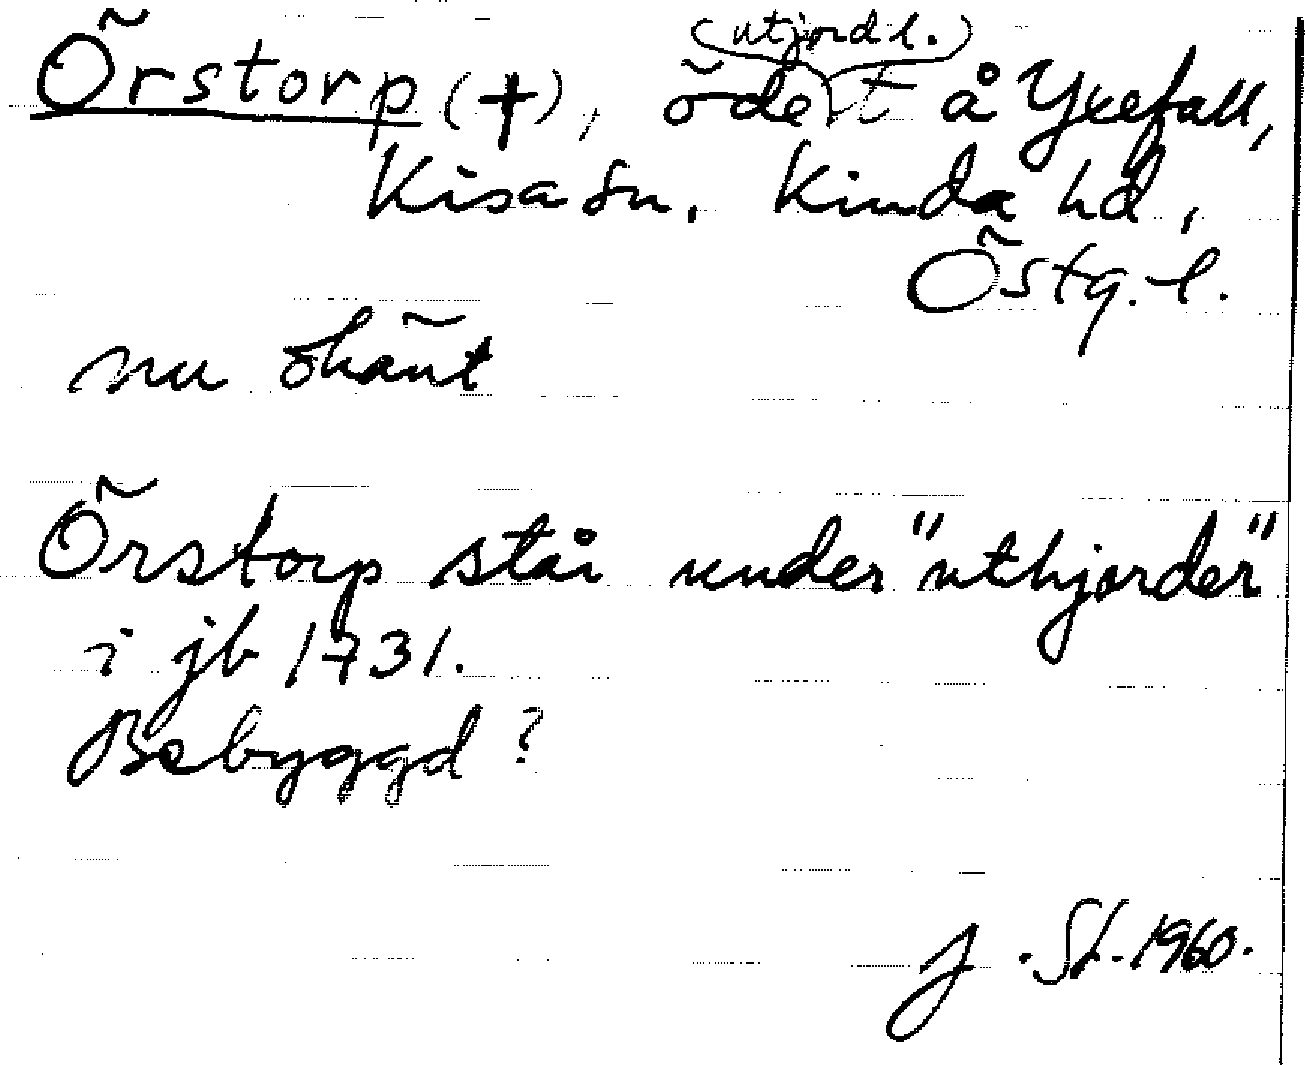 (utjord l.)
Örstorp (†), öde t å Yxefall,
Kisa sn, Kinda hd,
Östg. l.
nu okänt
Örstorp står under "uthjorder"
i jb 1731.
Bebyggd?
J. St. 1960.